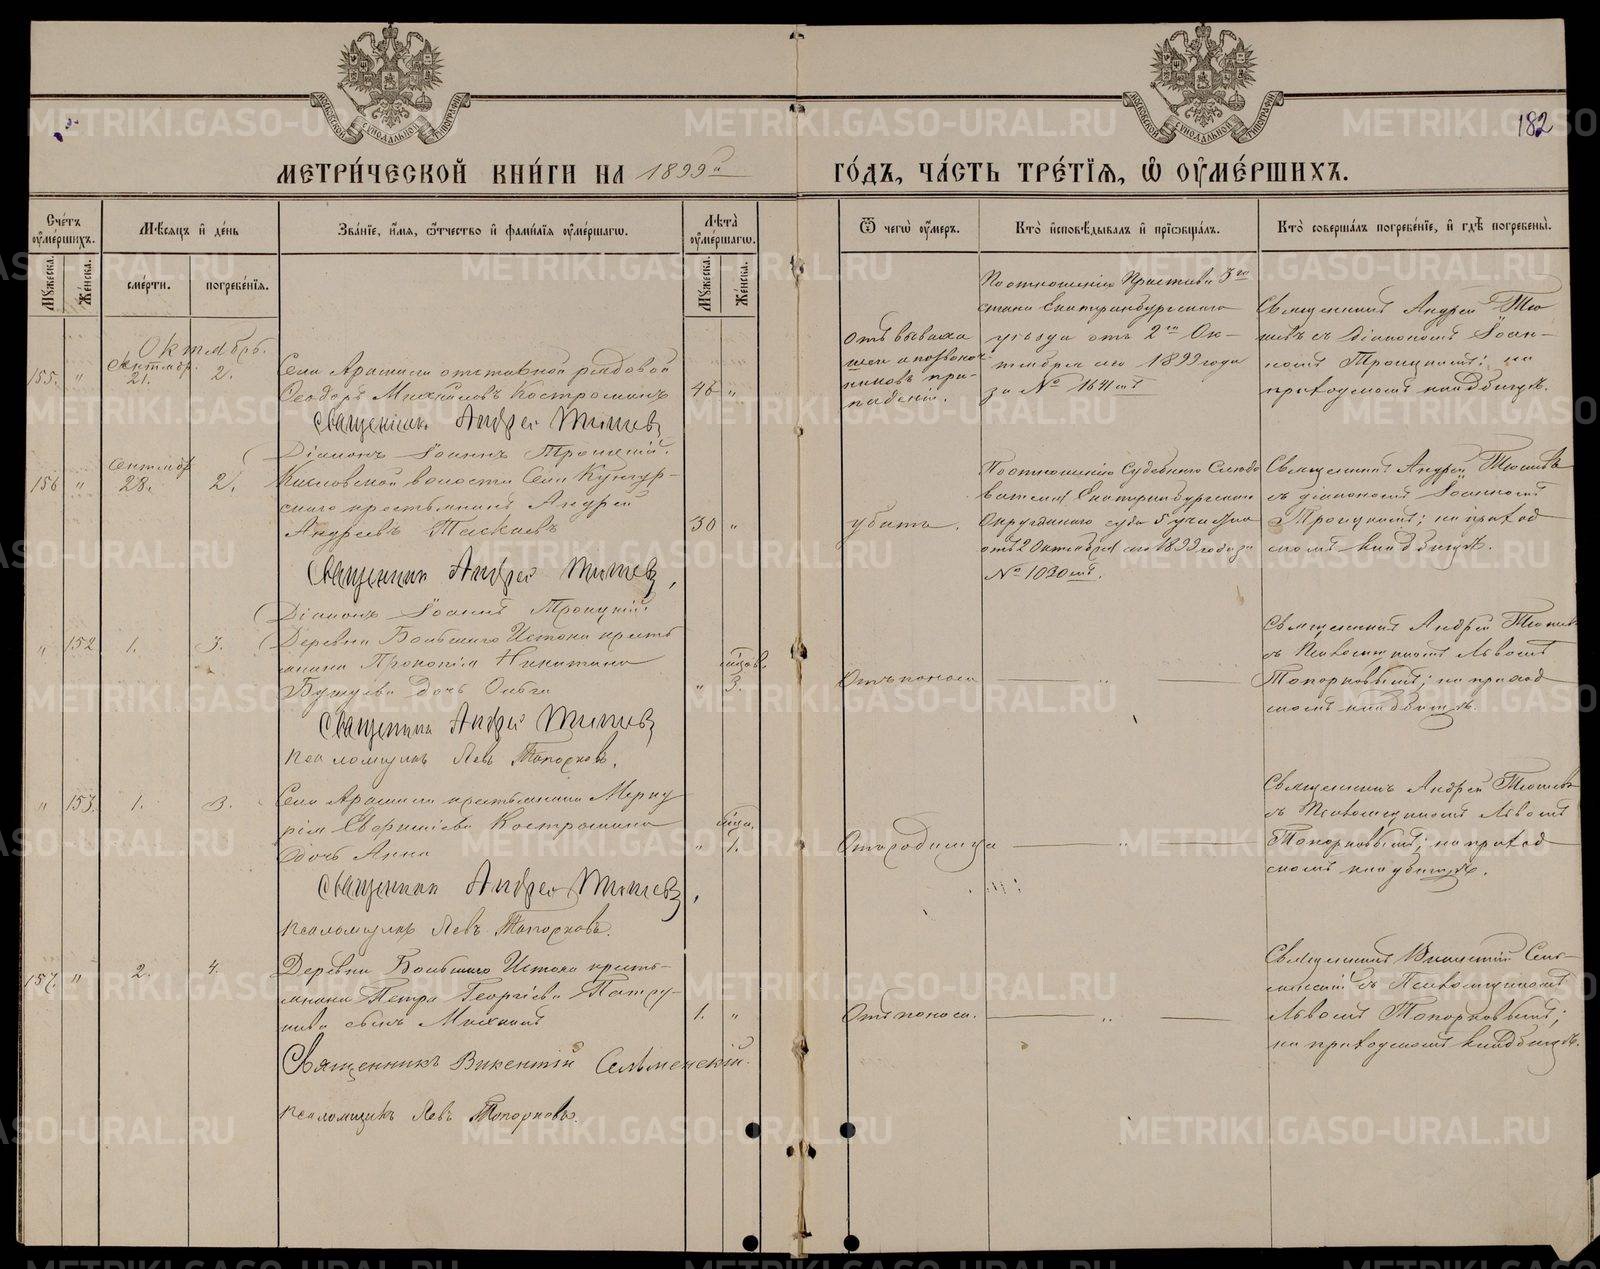 МЕТРИ́ЧЕСКОЙ КНИ́ГИ НА 1899й ГО́ДЪ, ЧА́СТЬ ТРЕ́ТІЯ, Ѿ ОУМЕ́РШИХЪ.
182
Сче́тъ оуме́ршихъ.
Му́жеска.
Же́нска.
Мѣ́сяцъ и де́нь
сме́рти.
погребе́нія.
Зва́ніе, и́мя, о́тчество и фами́лія оуме́ршагѡ.
Лѣ́та оуме́ршагѡ.
Му́жеска.
Же́нска.
Ѿ чегѡ̀ оу́меръ.
Кто̀ исповѣ́дывалъ и пріѡбща́лъ.
Кто̀ соверша́лъ погребе́ніе, и гдѣ̀ погребены̀.
Октябрь.
155. " Сентябр. 21. 2.
Села Арамили отставной рядовой
Ѳеодоръ Михайловъ Костроминъ
46 "
Священникъ Андрей Тюшевъ
Діаконъ Іоаннъ Троицкій.
По отношенію Пристава 3го
стана Екатеринбургскаго
уѣзда отъ 2го Ок-
тября сего 1899 года
за № 1641мъ
Священникъ Андрей Тю
шевъ съ діакономъ Іоан-
номъ Троицкимъ; на
приходскомъ кладбищѣ.
156 " Сентябр 28. 2.
Кисловской волости Села Кунгур-
скаго крестьянинъ Андрей
Андреевъ Таскаевъ
30 "
убитъ.
Священникъ Андрей Тюшевъ,
Діаконъ Іоаннъ Троицкій.
По отношенію Судебнаго Слѣдо
вателя Екатеринбургскаго
Окружнаго суда 5 участка
отъ 2 Октября сего 1899 года за
№ 1030мъ.
Священникъ Андрей Тюшевъ
съ діакономъ Іоанномъ
Троицкимъ; на приход
скомъ кладбищѣ.
" 152. 1. 3.
Деревни Большаго Истока кресть
янина Прокопія Никитина
дочь Ольга
" 3.
Отъ поноса
"
Священникъ Андрей Тюшевъ
Псаломщикъ Левъ Топорковъ.
Священникъ Андрей Тюшев
съ Псаломщикомъ Львомъ
Топорковымъ; на приход
скомъ кладбищѣ.
" 153. 1. 3.
Села Арамили крестьянина Мерку
рія Костромина
дочь Анна
" 1.
Отъ родимца
"
Священникъ Андрей Тюшевъ,
Псаломщикъ Левъ Топорковъ.
Священникъ Андрей Тюшевъ
съ Псаломщикомъ Львомъ
Топорковымъ; на приход
скомъ кладбищѣ.
157. " 2. 4.
Деревни Большаго Истока кресть-
янина Петра Георгіева
сынъ Михаилъ
1. "
Отъ поноса.
"
Священникъ Викентій Сельменскій.
Псаломщикъ Левъ Топорковъ.
Священникъ Викентій Сель-
менскій съ Псаломщикомъ
Львомъ Топорковымъ;
на приходскомъ кладбищѣ.
METRIKI.GASO-URAL.RU